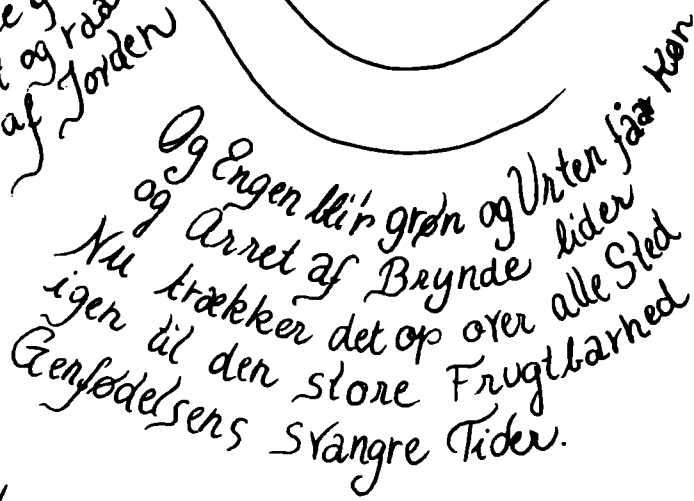 og raa
af Jorden
Og Engen blir grøn og Urten faar Køn
og Arret af Brynde lider
Nu trækker det op over alle Sted
igen til den store Frugtbarhed
Genfødelsens svangre Tider.